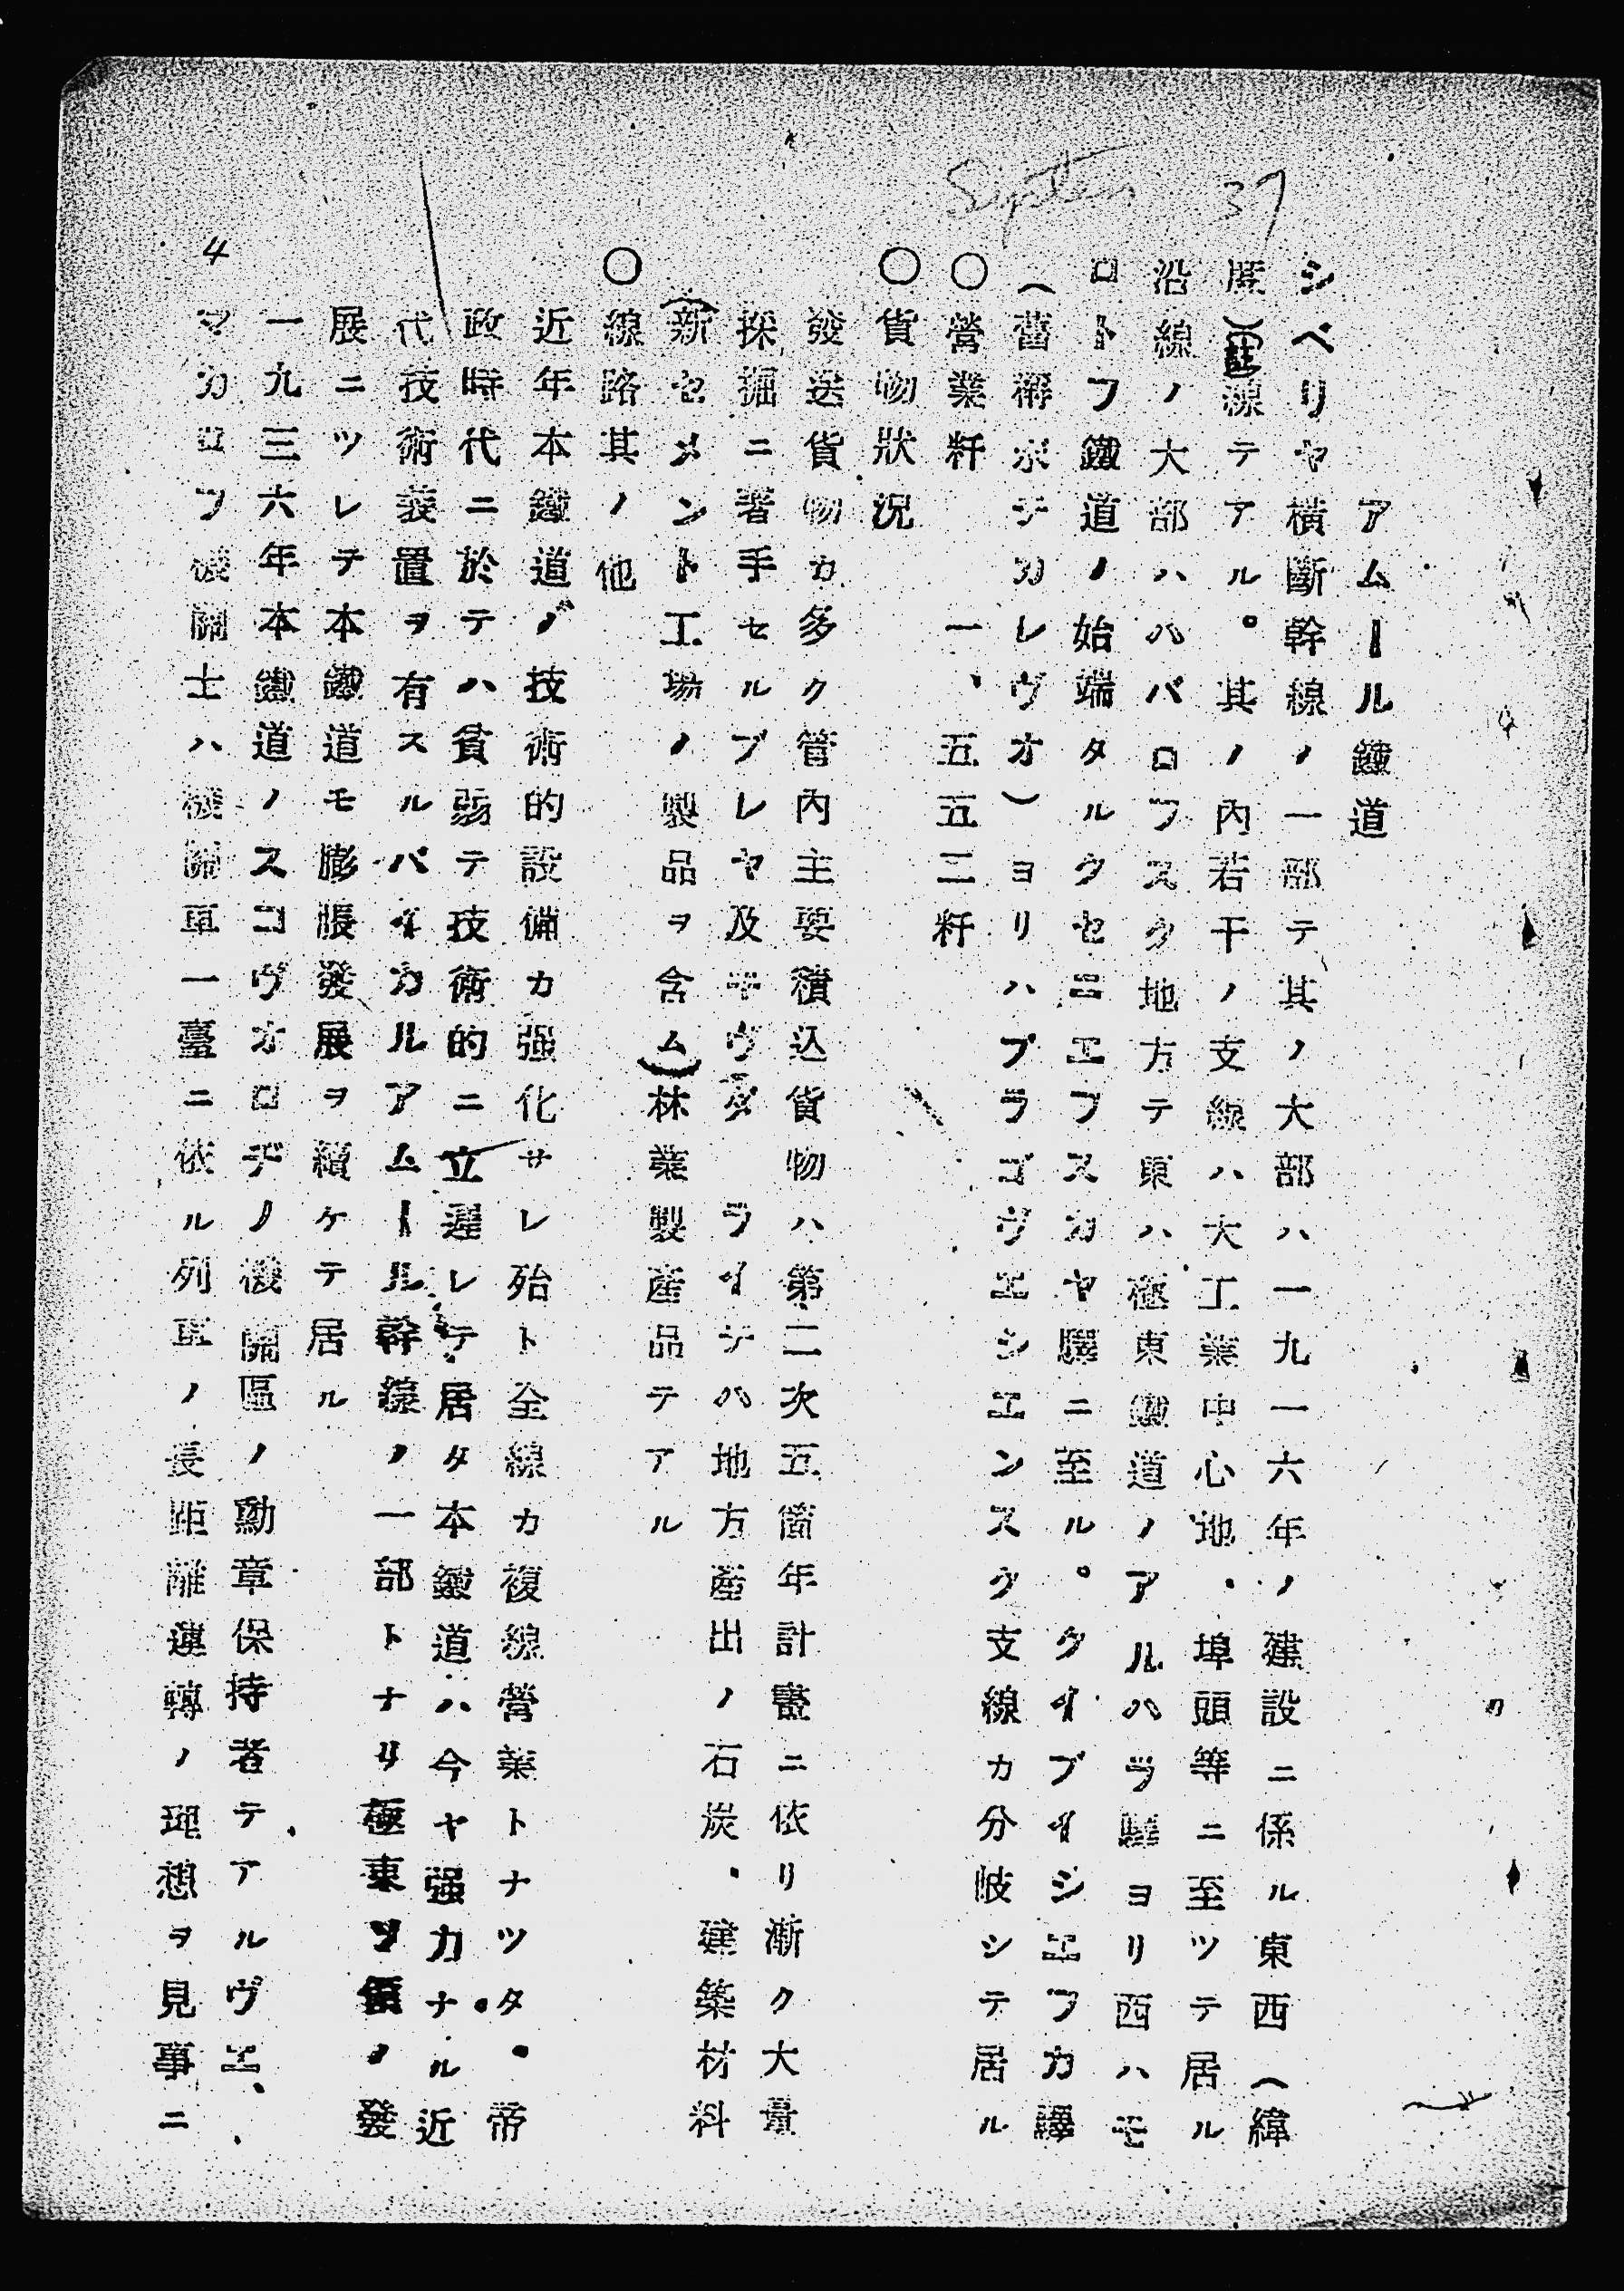 Septem 37
アムール鐵道
シベリヤ橫斷幹線ノ一部テ其ノ大部ハ一九一六年ノ建設ニ係ル東西(緯
度)線テアル。其ノ內若干ノ支線ハ大工業中心地、埠頭等ニ至ツテ居ル
沿線ノ大部ハハバロフスク地方テ東ハ極東鐵道ノアルハラ驛ヨリ西ハモ
ロトフ鐵道ノ始端タルクセニエフスカヤ驛ニ至ル。タイブイシエフカ驛
(舊稱ボチカレヴオ)ヨリハブラゴヴエシエンスク支線カ分岐シテ居ル
○營業粁 一、五五二粁
○貨物狀況
發送貨物カ多ク管內主要積込貨物ハ第二次五箇年計畫ニ依リ漸ク大量
採掘ニ著手セルブレヤ及キヴダ ライチハ地方產出ノ石炭、建築材料
(新セメント工場ノ製品ヲ含ム)林業製產品テアル
○線路其ノ他
近年本鐵道ノ技術的設備カ强化サレ殆ト全線カ複線營業トナツタ。帝
政時代ニ於テハ貧弱テ技術的ニ立遲レテ居タ本鐵道ハ今ヤ强力ナル近
代技術裝置ヲ有スルバイカルアムール幹線ノ一部トナリ極東ソ領ノ發
展ニツレテ本鐵道モ膨脹發展ヲ續ケテ居ル
一九三六年本鐵道ノスコヴオロヂノ機關區ノ勳章保持者テアルヴエ、
マカロフ機關士ハ機關車一臺ニ依ル列車ノ長距離運轉ノ理想ヲ見事ニ
4